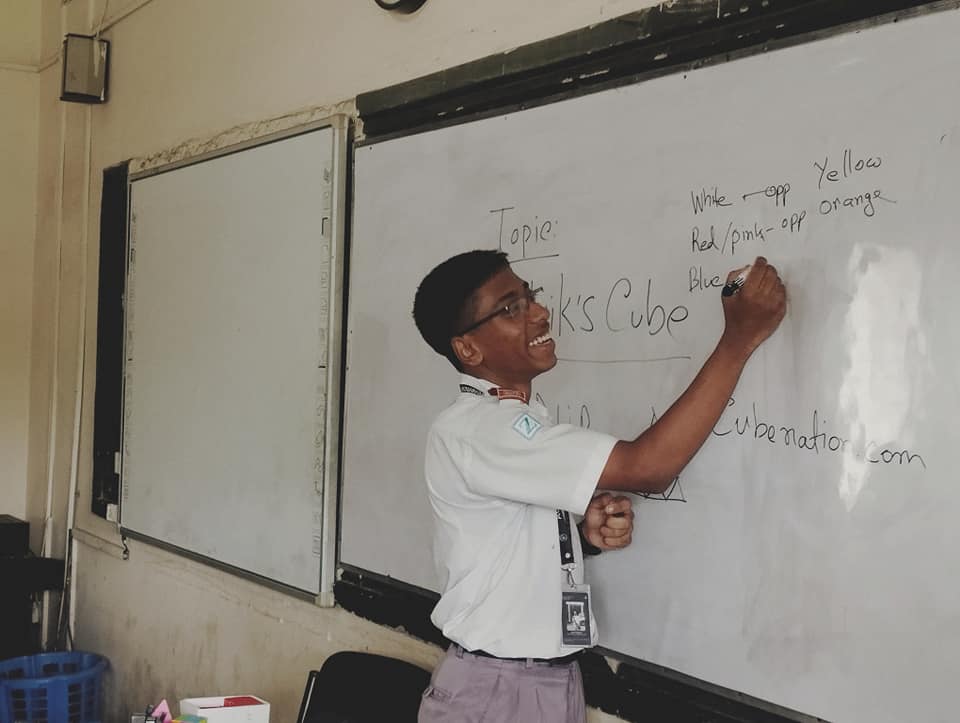 Topic:
White — opp Yellow
Red/pink - opp orange
Blue
Cube
Cubenation.com